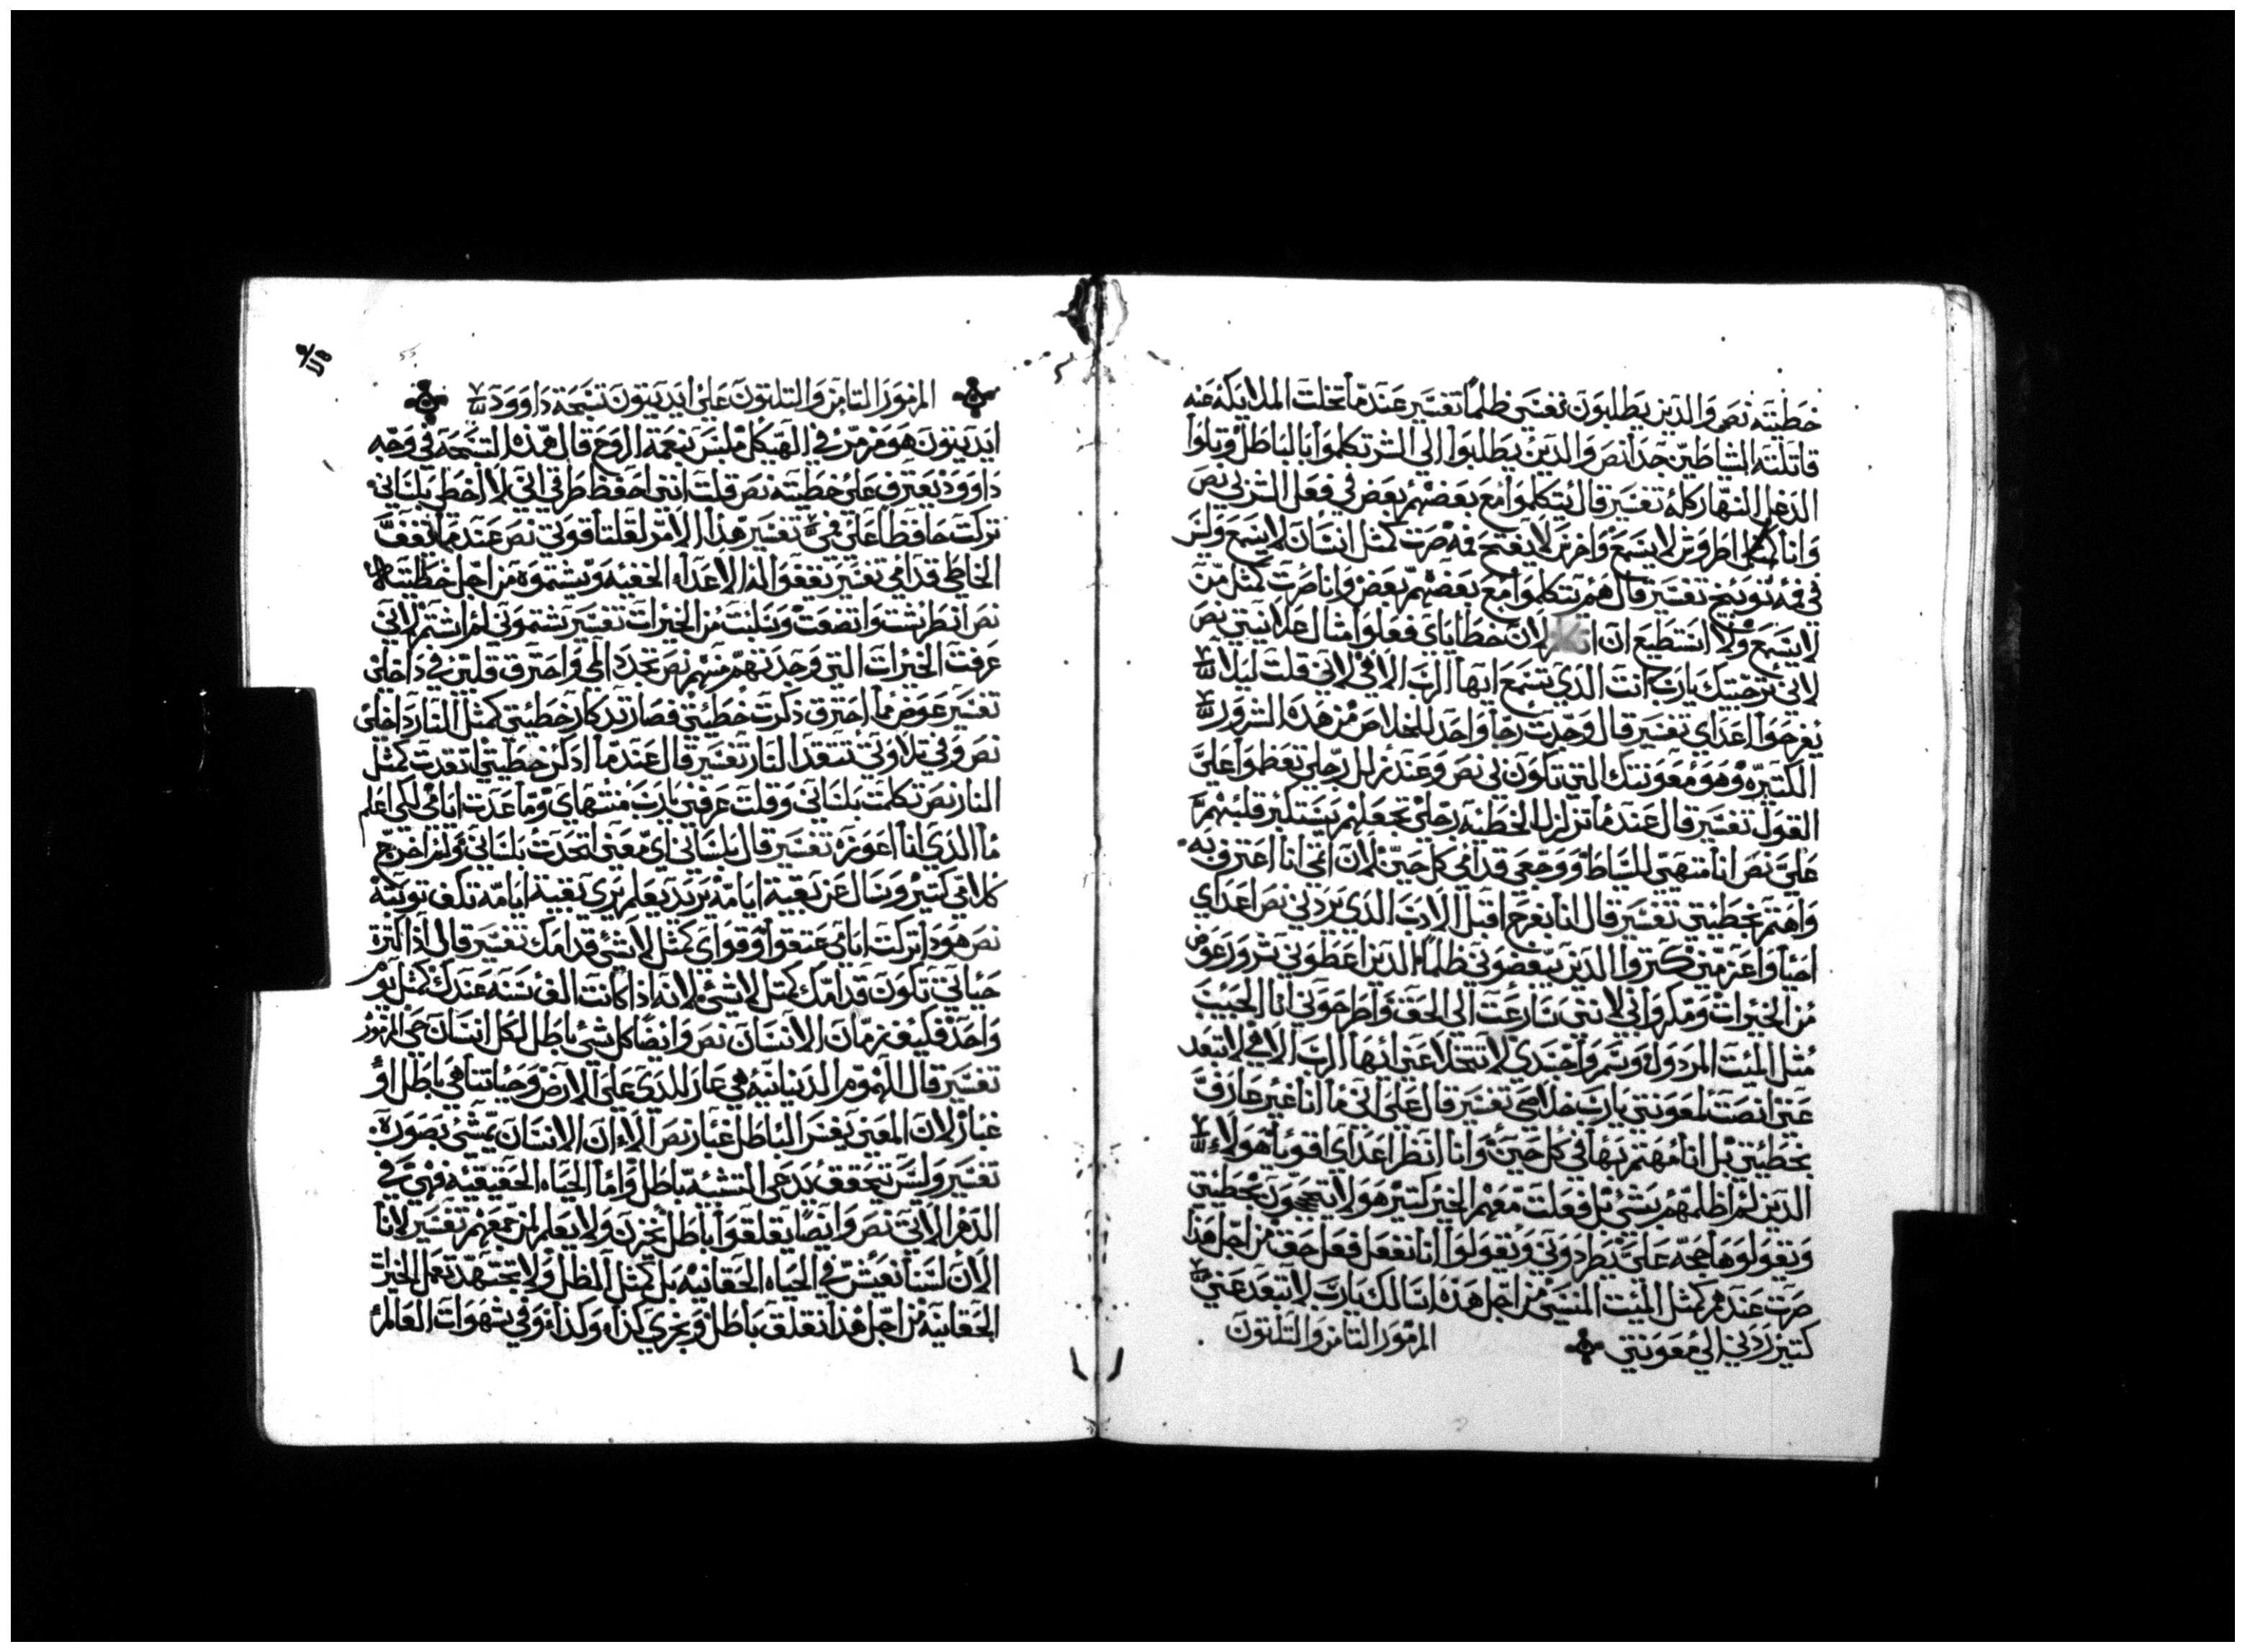 خطيته نص والدين يطلبون نفسي ظلما تفسير عندما تخلت الملايكه عنه
قاتلته الشاطين جدا نص والدين يطلبوا الي الشر تكلموا بالباطل وتلوا
الدغل النهار كله تفسير قال يتكلموا مع بعضهم بعض في فعل الشر لي نص
وانا كمثل اطروش لا يسمع واخرس لا يفتح فمه صرت كمثل انسان لا يسمع وليس
في فمه توبيخ تفسير قال هم يتكلموا مع بعضهم بعض وانا صرت كمثل من
لا يسمع ولا استطيع ان لان خطاياي فعلوا مثال علانيتي نص
لاني ترجيتك يارب انت الذي تسمع ايها الرب الاهي لاني قلت ليلا
يفرحوا اعداي تفسير قال وجدت رجا واحد للخلاص من هذه الشرور
الكتيره وهو معونتك التي تكون لي نص وعند زلل رجلي تعظموا علي
القول تفسير قال عندما تزلزل الخطيه رجلي تجعلهم يستكبر قلبهم
علي نص انا متهي للسياط ووجعي قدامي كل حين لان اتمي انا اعترف به
واهتم بخطيتي تفسير قال انا بفرح اقبل الادب الذي يردني نص اعداي
احيا واعز مني كتروا الدين يبغضوني ظلما الدين اعطوني شرور عوض
من الخيرات ومكروا بي لانني سارعت الي الحق واطرحوني انا الحبيب
مثل الميت المردول وسمروا جسدي لا تتخلا عني ايها الرب الاهي لا تبعد
عني انصت لمعونتي يارب خلاصي تفسير قال علي اني ما انا غير عارف
بخطيتي بل انا مهتم بها في كل حين وانا انظر اعداي اقويا هولاء
الدين لم اظلمهم بشي بل فعلت معهم الخير كتير هولا يتحججون بخطيتي
ويقولوها حجه علي يطردوني ويقولوا اننا نفعل فعل حق من اجل هذا
صرت عندهم كمثل الميت المنسي من اجل هذه اسالك يارب لا تبعد عني
كتير ردني الي معونتي المزمور التامن والتلتون
المزمور التامن والتلتون علي ايديتون تسبحة داوود
ايديتون هو مزمر في الهيكل ملبس بنعمة الروح قال هذه التسبحه في وجه
داوود يعترف علي خطيته نص قلت انني احفظ طرقي اني لا اخطي بلساني
تركت حافظا علي فمي تفسير هذا الامر لقلتا قوتي نص عندما يقف
الخاطي قدامي تفسير يقفوا لنا الاعدا الخفيه ويشتموه من اجل خطيته
نص انطرشت واتضعت وسلبت من الخيرات تفسير يشتموني لم اشتم لاني
عرفت الخيرات التي وجدتهم منهم نص تجدد المي واحترق قلبي في داخلي
تفسير عوض ما احترق ذكرت خطيتي فصار تدكار خطيتي كمثل النار داخلي
نص وفي تلاوتي تتقد النار تفسير قال عندما ادكر خطيتي اتقدت كمثل
النار نص تكلمت بلساني وقلت عرفني يارب منتهاي وما عدت ايامي لكي اعلم
ما الدي انا اعوزه تفسير قال بلساني اي معني اتحدت بلساني ولم اخرج
كلامي كتير وسال عن بقية ايامه يريد يعلم يري بقية ايامه تكف توبته
نص هودا تركت ايامي عتقوا وقواي كمثل لا شي قدامك تفسير قال اذا كترة
حياتي تكون قدامك كمثل لا شي لانه اذا كانت الف سنه عندك كمثل يوم
واحد فكيف زمان الانسان نص وايضا كل شي باطل لكل انسان حي المزمور
تفسير قال الهموم الدنيانيه هي عار للدي علي الارض وحياتنا هي باطل او
غبار لان المعني يفسر الباطل غبار نص الاء ان الانسان يمشي بصورة
تفسير وليس تحقق يدعي التشبه باطل واما الحياه الحقيقيه فهي في
الدهر الاتي نص وايضا يقلقوا باطل يخزن ولا يعلم لمن يجمعهم تفسير لاننا
الان لسنا نعيش في الحياه الحقانيه بل كمثل الظل ولا تجتهد بعمل الخيرات
الحقانيه من اجل هذا نقلق باطل ونجري كذا وكذا وفي شهوات العالم